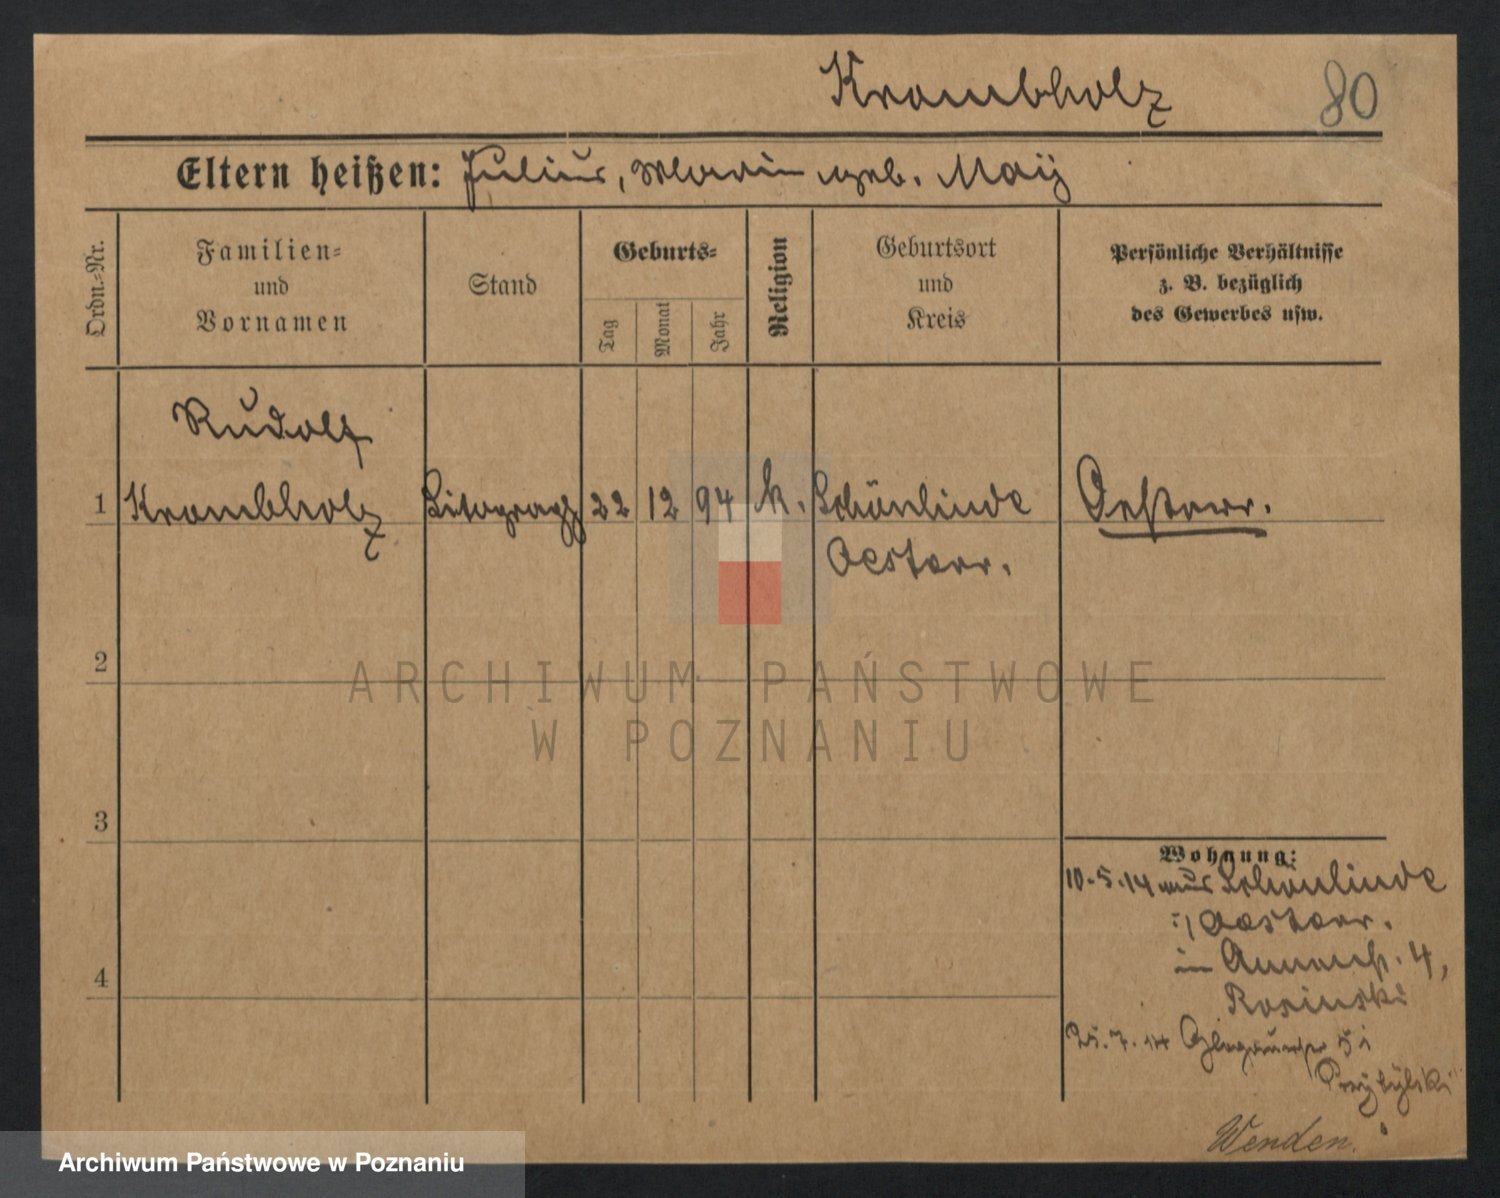 Krombholz 80
Eltern heißen: Julius, Marie geb. May
Ordn.-Nr.
Familien-
und
Vornamen
Stand
Geburts-
Tag
Monat
Jahr
Religion
Geburtsort
und
Kreis
Persönliche Verhältnisse
z. B. bezüglich
des Gewerbes usw.
Rudolf
1 Krombholz Litograph 22 12 94 k. Schönlinde Oesterr.
Oesterr.
2
ARCHIWUM PAŃSTWOWE
W POZNANIU
3
Wohnung:
10.5.14 aus Schönlinde
Oesterr.
in 4,
Rosinski
4
25.7.14
Wenden.
Archiwum Państwowe w Poznaniu